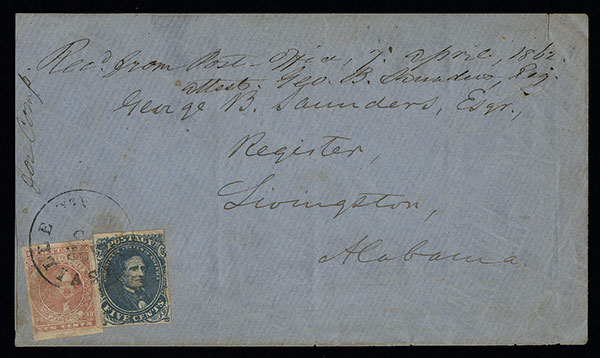 Rec'd. from Post-Office, 7. april, 1862.
attest. Geo. B. Saunders, Reg.
George B. Saunders, Esqr.,
Register,
Livingston,
Alabama.
POSTAGE
FIVE CENTS
TEN CENTS